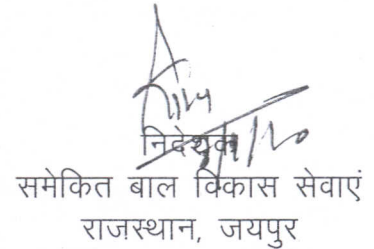 निदेशक
समेकित बाल विकास सेवाएं
राजस्थान, जयपुर